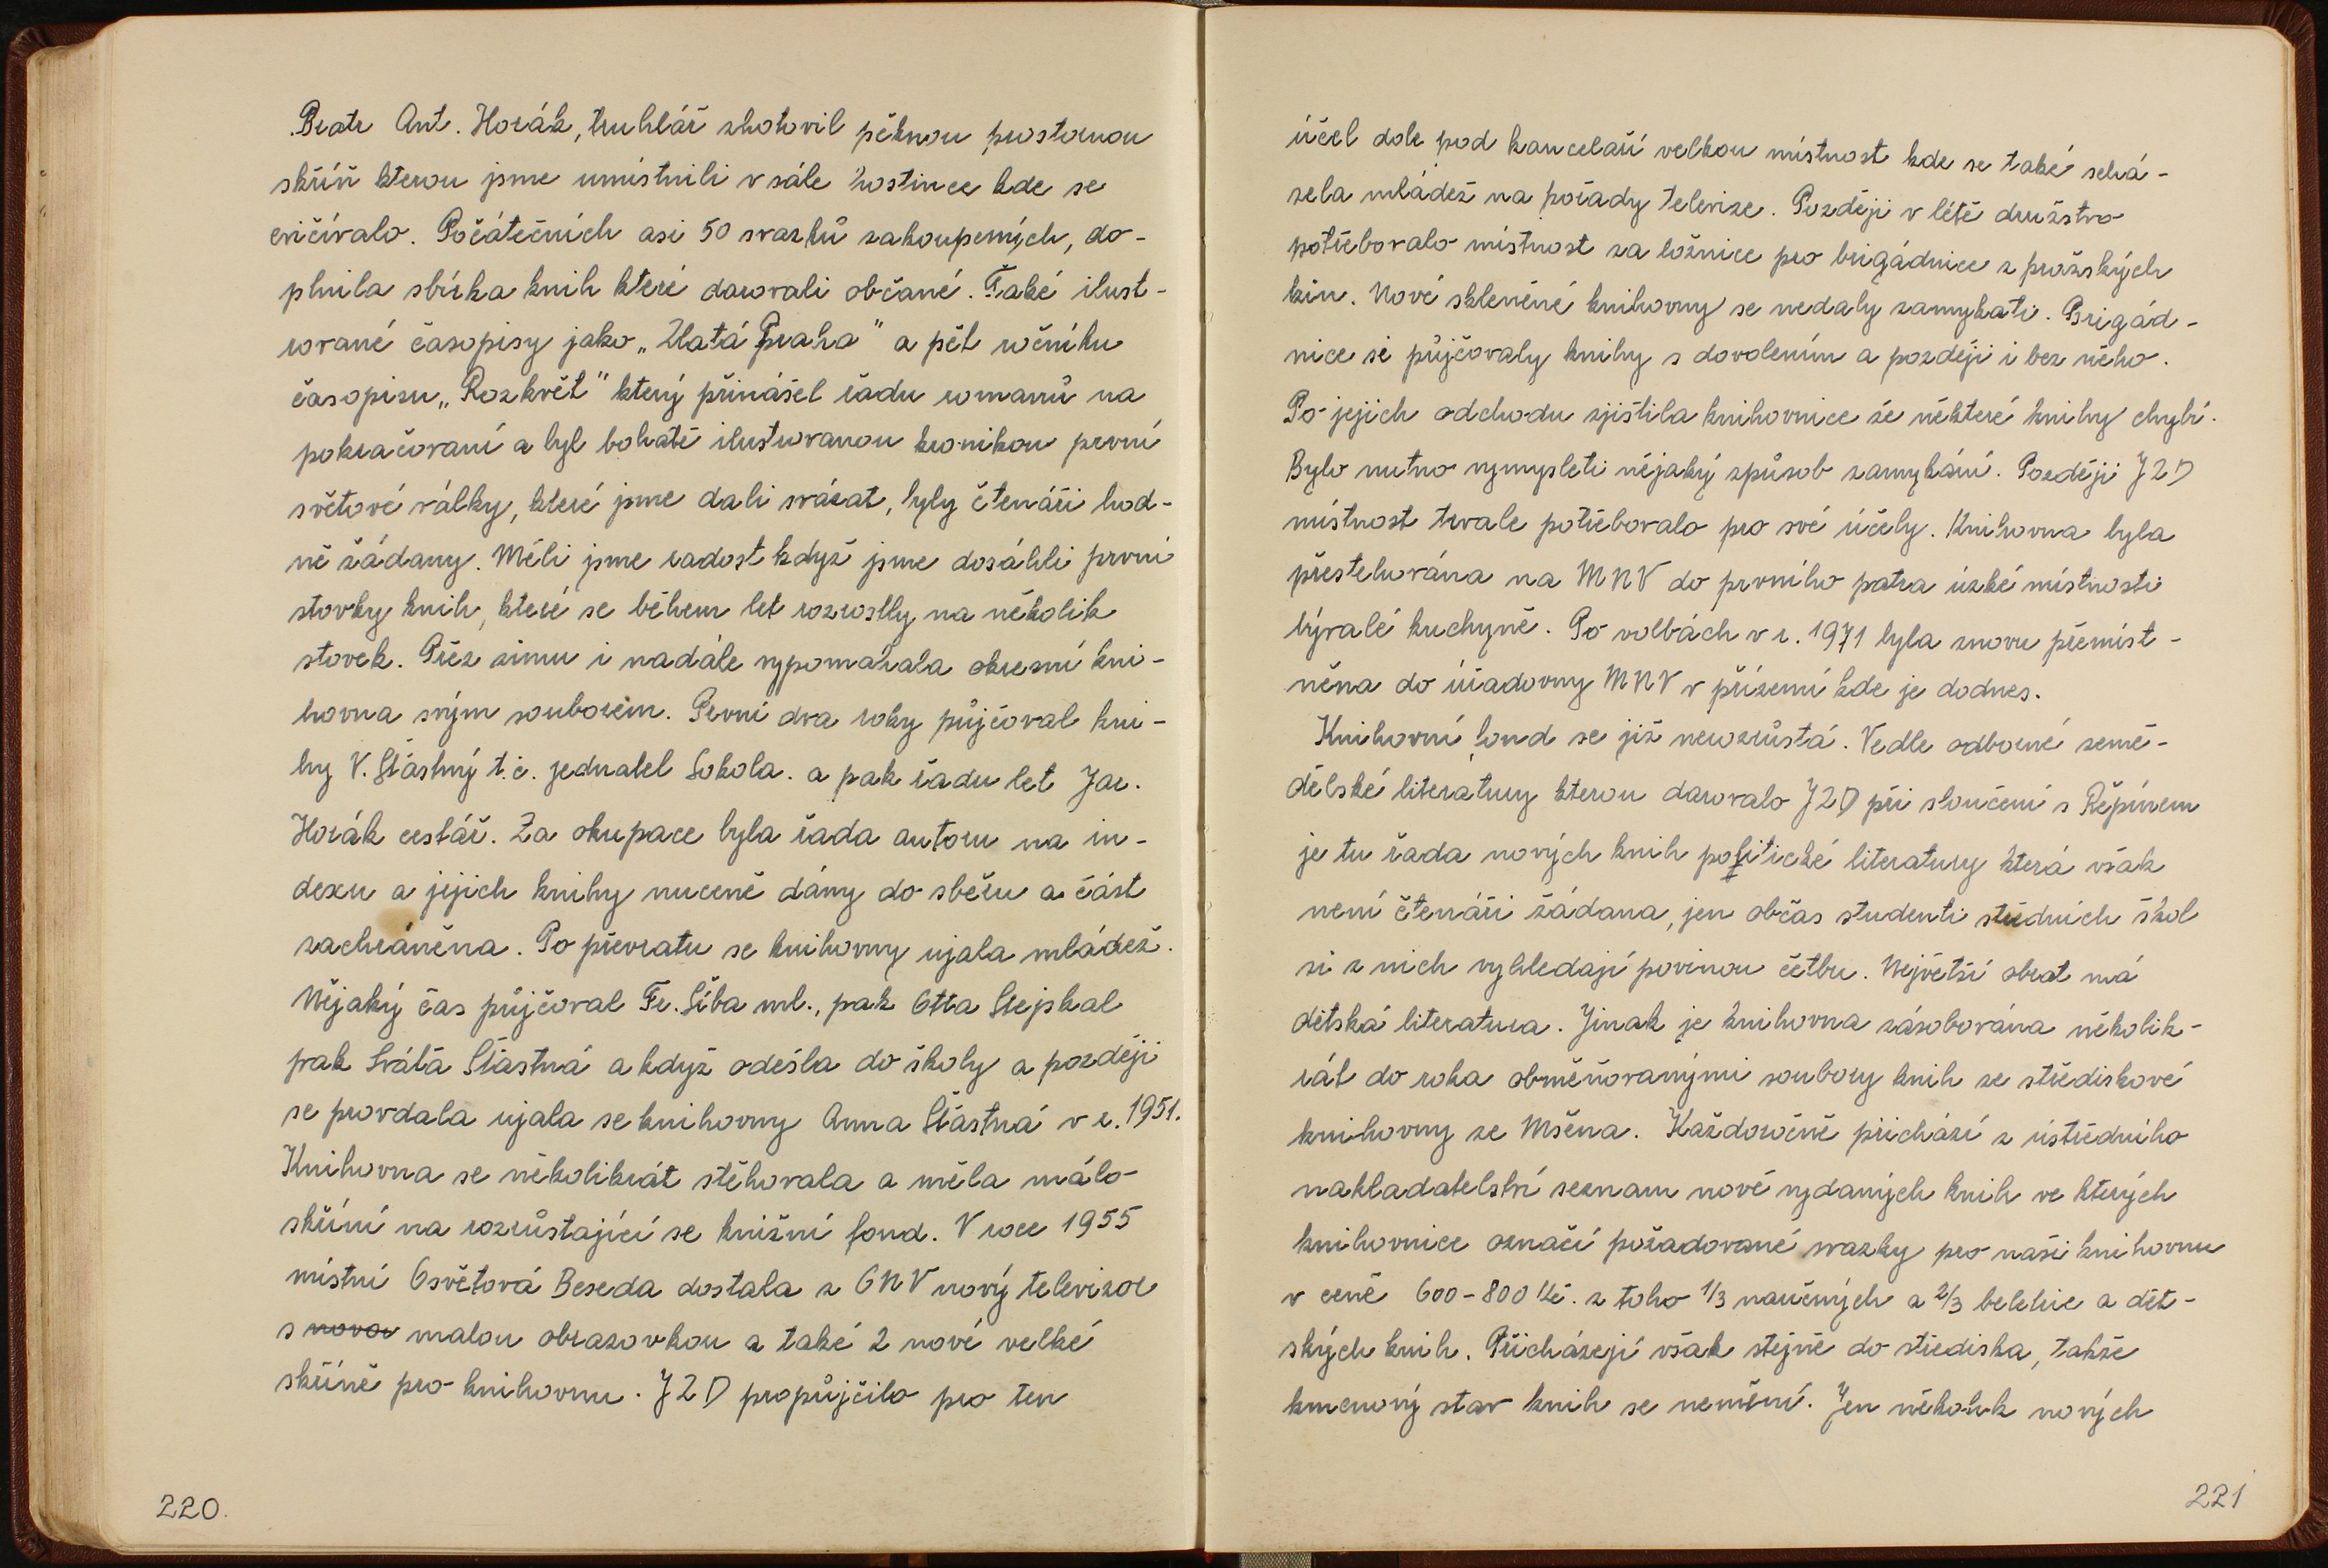 Bratr Ant. Horák, truhlář zhotovil pěknou prostornou
skříň kterou jsme umístnili v sále hostince kde se
cvičívalo. Počátečních asi 50 svazků zakoupených, do-
plnila sbírka knih které darovali občané. Také ilust-
rované časopisy jako „Zlatá Praha" a pět ročníku
časopisu „Rozkvět" který přinášel řadu romanů na
pokračovaní a byl bohatě ilustrovanou kronikou první
světové války, které jsme dali svázat, byly čtenáři hod-
ně žádany. Měli jsme radost když jsme dosáhli první
stovky knih, které se během let rozrostly na několik
stovek. Přez zimu i nadále vypomahala okresní kni-
hovna svým souborem. První dva roky půjčoval kni-
hy V. Šťástný t.č. jednatel Sokola. a pak řadu let Jar.
Horák cestář. Za okupace byla řada autoru na in-
dexu a jejich knihy nuceně dány do sběru a část
zachráněna. Po převratu se knihovny ujala mládež.
Nějaký čas půjčoval Fr. Šíba ml., pak Otta Stejskal
pak Sváťa Šťastná a když odešla do školy a později
se provdala ujala se knihovny Anna Šťástná v r. 1951.
Knihovna se několikrát stěhovala a měla málo
skříní na rozrůstající se knižní fond. V roce 1955
místní Osvětová Beseda dostala z ONV nový televizor
s novou malou obrazovkou a také 2 nové velké
skříně pro knihovnu. JZD propůjčilo pro ten
220.
účel dole pod kanceláří velkou místnost kde se také schá-
zela mládež na pořady televize. Později v létě družstvo
potřebovalo místnost za ložnice pro brigádnice z pražských
kin. Nové skleněné knihovny se nedaly zamykati. Brigád-
nice si půjčovaly knihy s dovolením a později i bez něho.
Po jejich odchodu zjistila knihovnice že některé knihy chybí.
Bylo nutno vymysleti nějaký způsob zamykání. Později JZD
místnost trvale potřebovalo pro své účely. Knihovna byla
přestehována na MNV do prvního patra úzké místnosti
bývalé kuchyně. Po volbách v r. 1971 byla znovu přemíst-
něna do úřadovny MNV v přízemí kde je dodnes.
Knihovní fond se již nerozrůstá. Vedle odborné země-
dělské literatury kterou darovalo JZD při sloučení s Řepínem
je tu řada nových knih politické literatury která však
není čtenáři žádana, jen občas studenti středních škol
si z nich vyhledají povinou četbu. Největší obrat má
dětská literatura. Jinak je knihovna zásobována několik-
rát do roka obměňovanými soubory knih ze střediskové
knihovny ze Mšena. Každoročně přichází z ústředního
nakladatelství seznam nově vydaných knih ve kterých
knihovnice označí požadované svazky pro naši knihovnu
v ceně 600-800 Kč. z toho 1/3 naučných a 2/3 beletrie a dět-
ských knih. Přicházejí však stejně do střediska, takže
kmenový stav knih se nemění. Jen několik nových
221